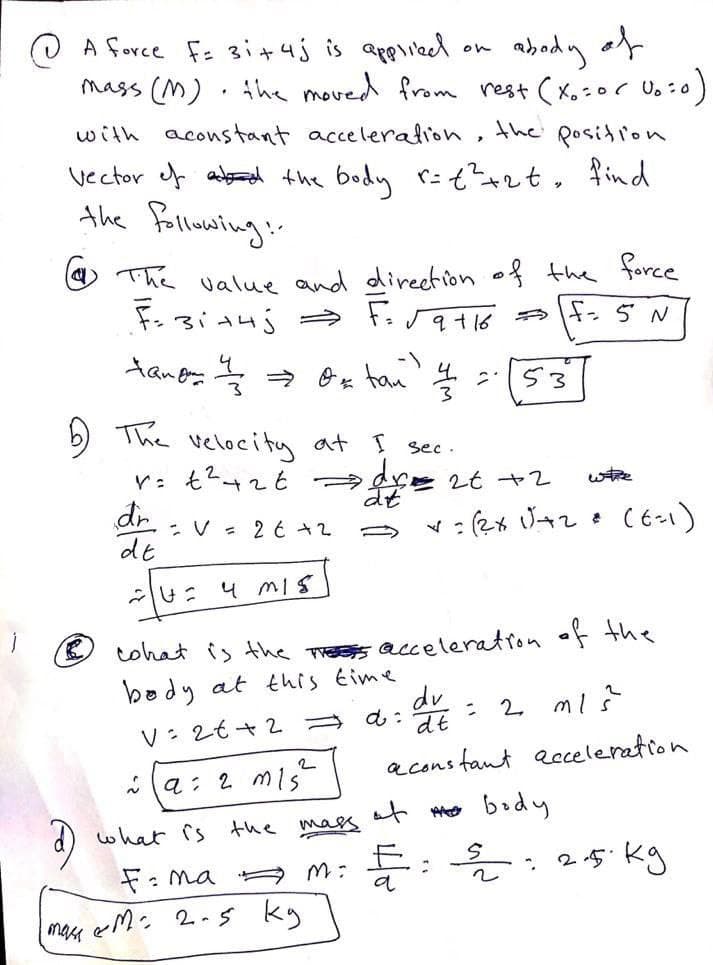 ① A force F = 3i + 4j is applied on abody of
mass (M) . the moved from rest (x₀=0 , U₀=0)
with aconstant acceleration, the position
vector of the body r = t²+2t, find
the following:-
ⓐ The value and direction of the force
F̅ = 3i + 4j ⇒ F̅ = √9+16 ⇒ F = 5 N
tanθ = 4/3 ⇒ θ = tan⁻¹ 4/3 = 53°
b) The velocity at 1 sec.
r = t²+2t ⇒ dr/dt = 2t + 2
dr/dt = V = 2t + 2 ⇒ v = (2x1)+2 (t=1)
∴ v = 4 m/s
ⓒ what is the acceleration of the
body at this time
V = 2t + 2 ⇒ a = dv/dt = 2 m/s²
∴ a = 2 m/s² aconstant acceleration
d) what is the mass of body
F = ma ⇒ m = F/a = 5/2 = 2.5 kg
mass M = 2.5 kg